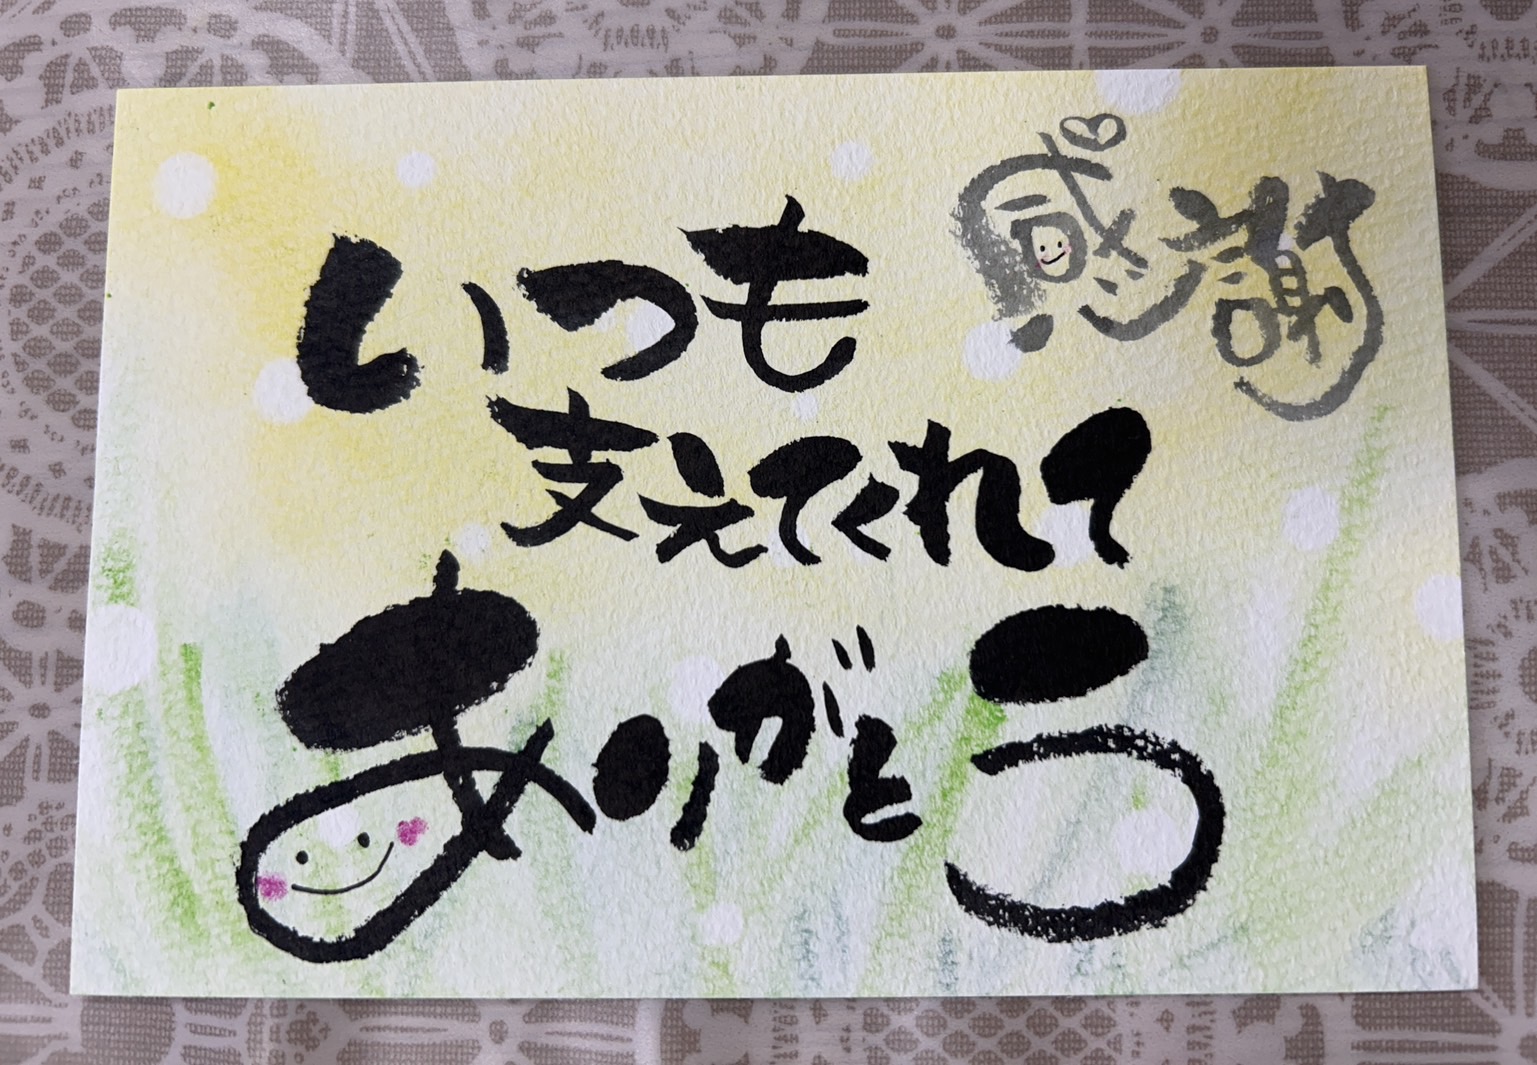 感謝
いつも
支えてくれて
ありがとう